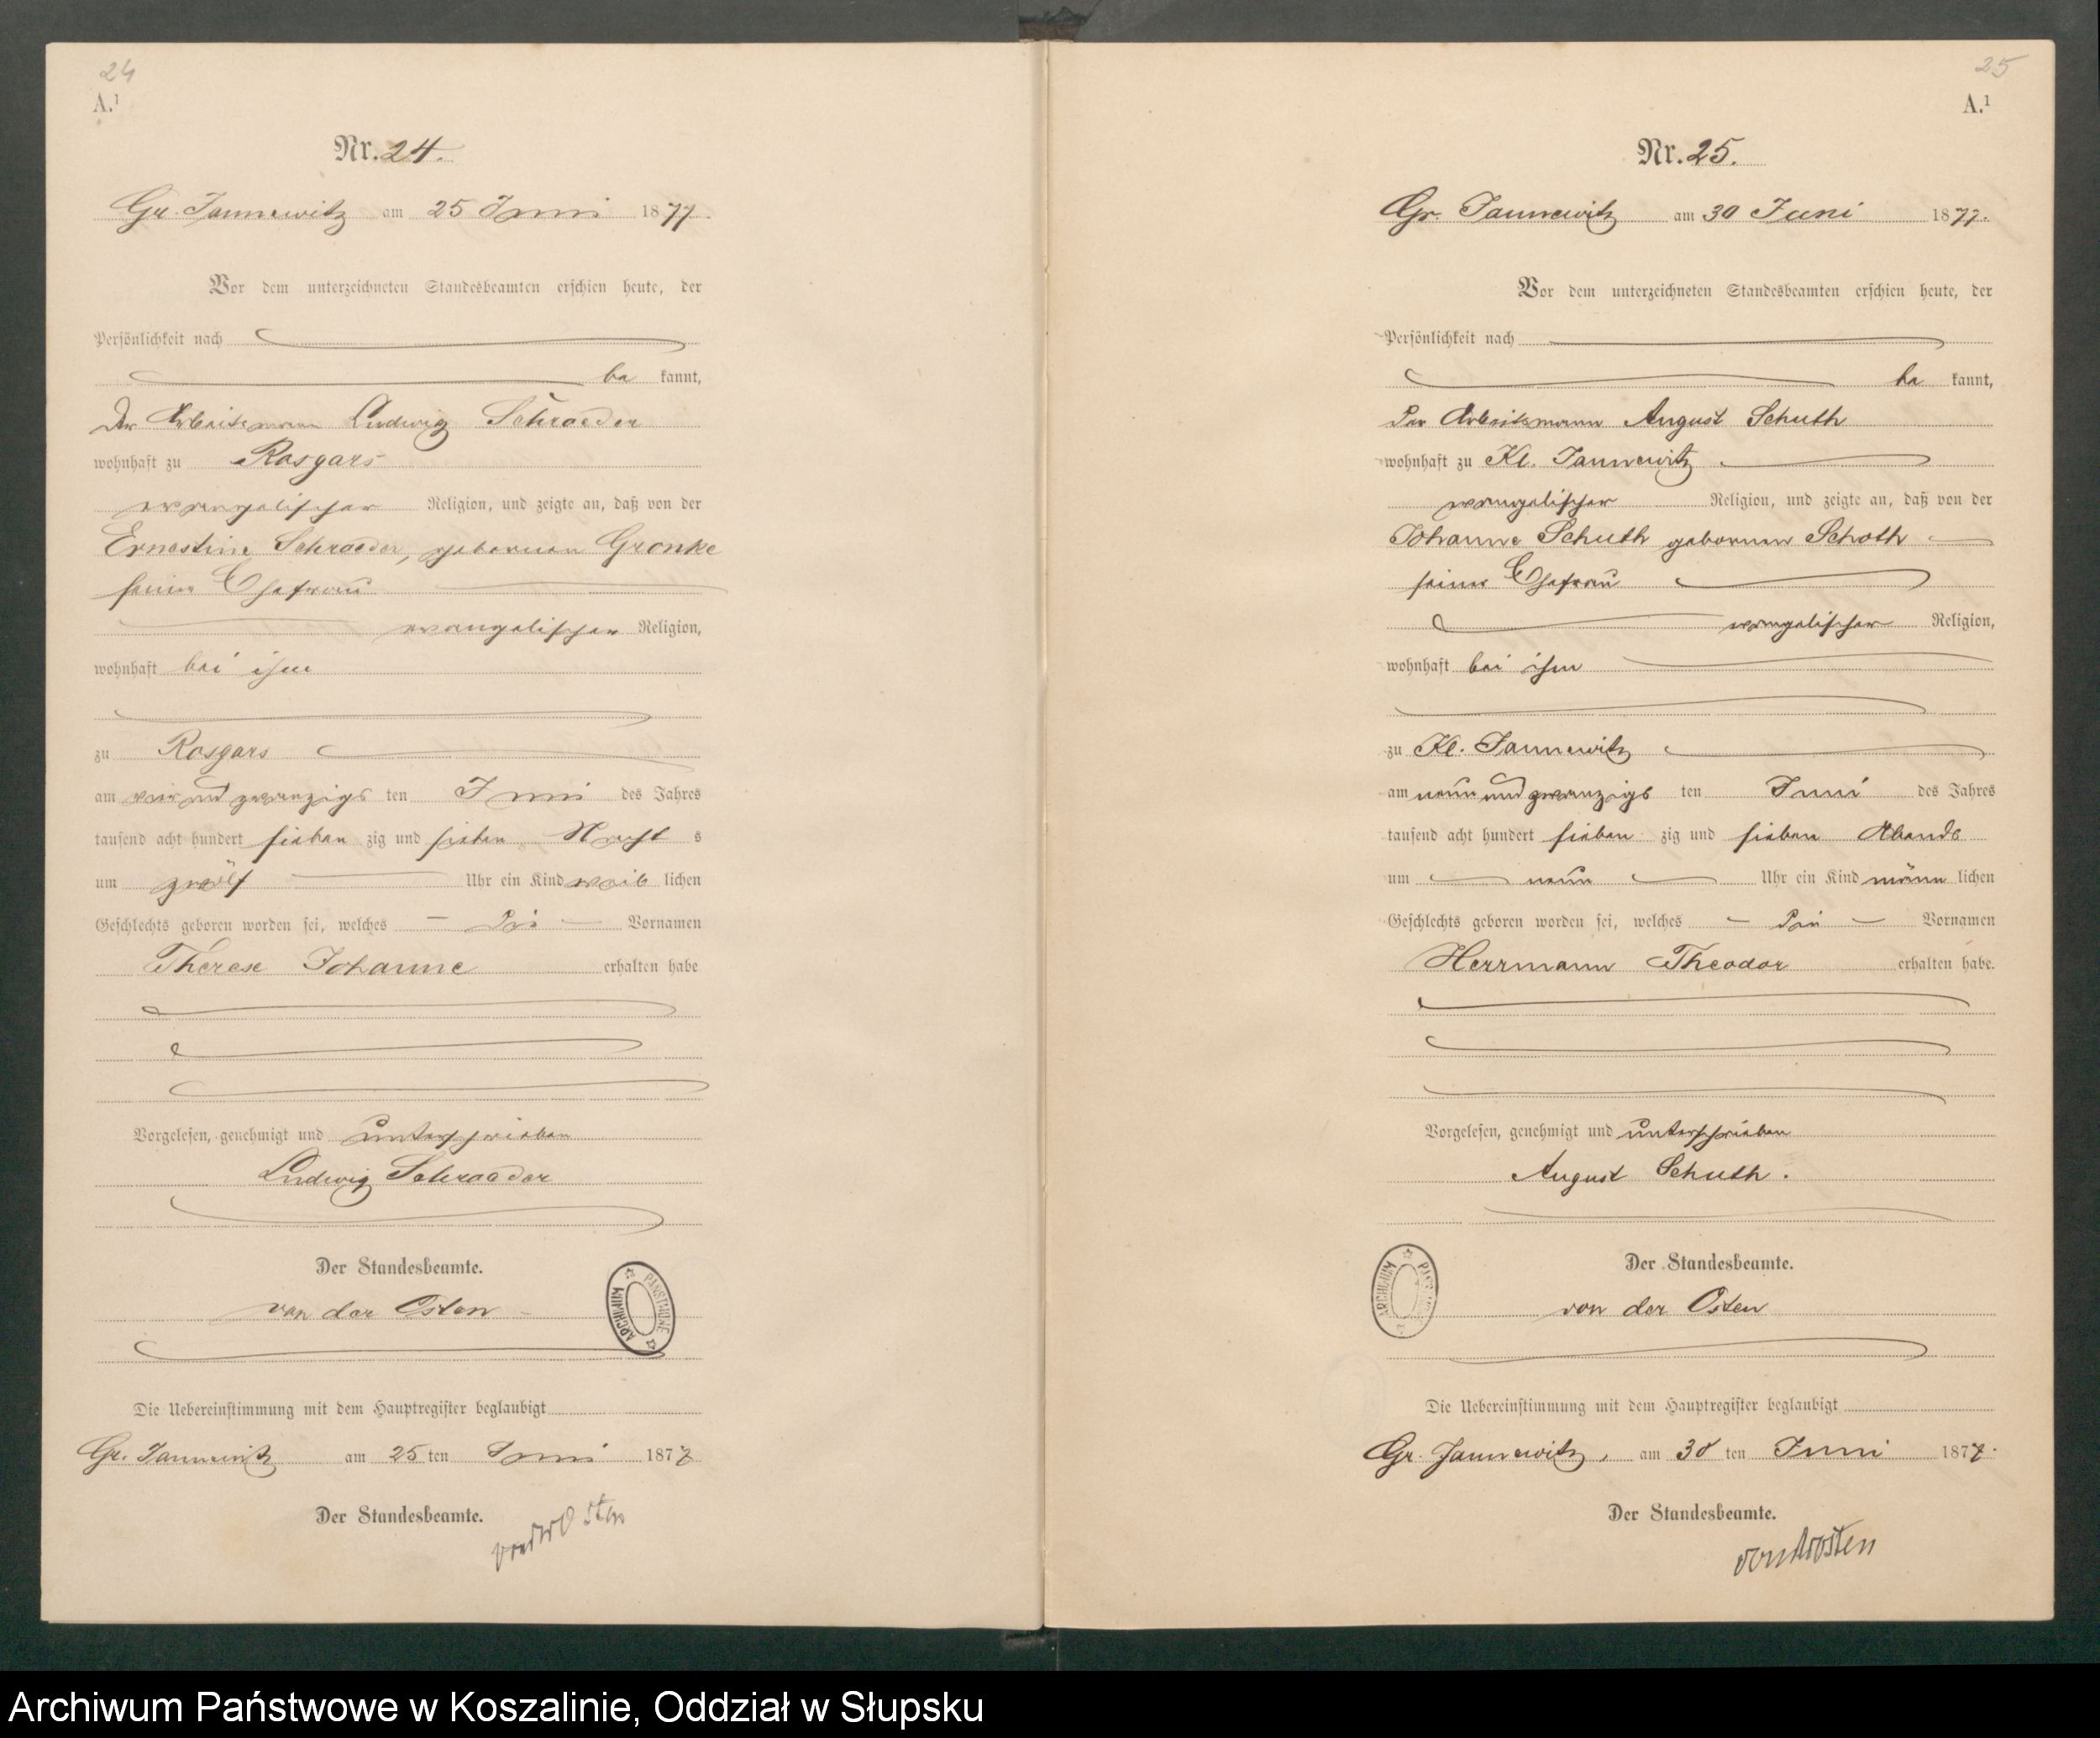 24
A.¹
Nr. 24.
Gr. Jannewitz am 25 Juni 1877.
Vor dem unterzeichneten Standesbeamten erschien heute, der
Persönlichkeit nach
be kannt,
Der Arbeitsmann Ludwig Schraeder
wohnhaft zu Rosgars
evangelischer Religion, und zeigte an, daß von der
Ernestine Schraeder, geborenen Gronke
seiner Ehefrau
evangelischer Religion,
wohnhaft bei ihm
zu Rosgars
am ein und zwanzigs ten Juni des Jahres
tausend acht hundert sieben zig und sieben Nacht s
um zwölf Uhr ein Kind weib lichen
Geschlechts geboren worden sei, welches die Vornamen
Therese Johanne erhalten habe
Vorgelesen, genehmigt und unterschrieben
Ludwig Schraeder
Der Standesbeamte.
von der Osten
ARCHIWUM PAŃSTWOWE
Die Uebereinstimmung mit dem Hauptregister beglaubigt
Gr. Jannewitz am 25 ten Juni 1877
Der Standesbeamte.
von der Osten
25
A.¹
Nr. 25.
Gr. Jannewitz am 30 Juni 1877.
Vor dem unterzeichneten Standesbeamten erschien heute, der
Persönlichkeit nach
be kannt,
Der Arbeitsmann August Schuth
wohnhaft zu Kl. Jannewitz
evangelischer Religion, und zeigte an, daß von der
Johanne Schuth geborenen Schoth
seiner Ehefrau
evangelischer Religion,
wohnhaft bei ihm
zu Kl. Jannewitz
am neun und zwanzigs ten Juni des Jahres
tausend acht hundert sieben zig und sieben Abends
um neun Uhr ein Kind männ lichen
Geschlechts geboren worden sei, welches die Vornamen
Herrmann Theodor erhalten habe.
Vorgelesen, genehmigt und unterschrieben
August Schuth.
Der Standesbeamte.
von der Osten
ARCHIWUM
Die Uebereinstimmung mit dem Hauptregister beglaubigt
Gr. Jannewitz, am 30 ten Juni 1877.
Der Standesbeamte.
von der Osten
Archiwum Państwowe w Koszalinie, Oddział w Słupsku